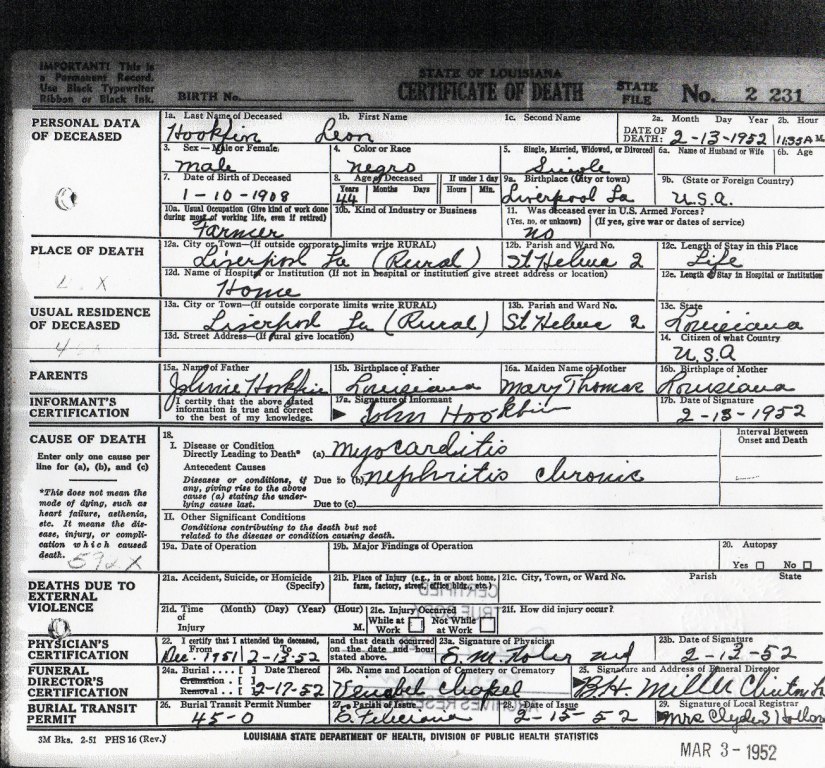 IMPORTANT! This is
a Permanent Record.
Use Black Typewriter
Ribbon or Black Ink.
BIRTH No.
STATE OF LOUISIANA
CERTIFICATE OF DEATH
STATE
FILE
No. 2 231
PERSONAL DATA
OF DECEASED
1a. Last Name of Deceased
Hookfin
1b. First Name
Leon
1c. Second Name
2a. Month Day Year
DATE OF
DEATH: 2-13-1952
2b. Hour
11:35A M.
3. Sex—Male or Female.
male
4. Color or Race
negro
5. Single, Married, Widowed, or Divorced
Single
6a. Name of Husband or Wife
6b. Age
7. Date of Birth of Deceased
1-10-1908
8. Age of Deceased
Years Months Days
44
If under 1 day
Hours Min.
9a. Birthplace (City or town)
Liverpool La
9b. (State or Foreign Country)
U.S.A.
10a. Usual Occupation (Give kind of work done
during most of working life, even if retired)
Farmer
10b. Kind of Industry or Business
11. Was deceased ever in U.S. Armed Forces?
(Yes, no, or unknown) (If yes, give war or dates of service)
no
PLACE OF DEATH
12a. City or Town—(If outside corporate limits write RURAL)
Liverpool La (Rural)
12b. Parish and Ward No.
St Helena 2
12c. Length of Stay in this Place
Life
12d. Name of Hospital or Institution (If not in hospital or institution give street address or location)
Home
12e. Length of Stay in Hospital or Institution
USUAL RESIDENCE
OF DECEASED
13a. City or Town—(If outside corporate limits write RURAL)
Liverpool La (Rural)
13b. Parish and Ward No.
St Helena 2
13c. State
Louisiana
13d. Street Address—(If rural give location)
14. Citizen of what Country
U.S.A
PARENTS
15a. Name of Father
Johnie Hookfin
15b. Birthplace of Father
Louisiana
16a. Maiden Name of Mother
Mary Thomas
16b. Birthplace of Mother
Louisiana
INFORMANT'S
CERTIFICATION
I certify that the above stated
information is true and correct
to the best of my knowledge.
17a. Signature of Informant
John Hookfin
17b. Date of Signature
2-13-1952
CAUSE OF DEATH
Enter only one cause per
line for (a), (b), and (c)
*This does not mean the
mode of dying, such as
heart failure, asthenia,
etc. It means the dis-
ease, injury, or compli-
cation which caused
death.
18.
I. Disease or Condition
Directly Leading to Death* (a) myocarditis
Antecedent Causes
Diseases or conditions, if
any, giving rise to the above
cause (a) stating the under-
lying cause last.
Due to (b) nephritis chronic
Due to (c)
Interval Between
Onset and Death
II. Other Significant Conditions
Conditions contributing to the death but not
related to the disease or condition causing death.
19a. Date of Operation
19b. Major Findings of Operation
20. Autopsy
Yes No
DEATHS DUE TO
EXTERNAL
VIOLENCE
21a. Accident, Suicide, or Homicide
(Specify)
21b. Place of Injury (e.g., in or about home,
farm, factory, street, office bldg., etc.)
21c. City, Town, or Ward No. Parish State
21d. Time (Month) (Day) (Year) (Hour)
of
Injury M.
21e. Injury Occurred
While at Work Not While at Work
21f. How did injury occur?
PHYSICIAN'S
CERTIFICATION
22. I certify that I attended the deceased,
From To
Dec. 1951 2-13-52
and that death occurred
on the date and hour
stated above.
23a. Signature of Physician
23b. Date of Signature
2-13-52
FUNERAL
DIRECTOR'S
CERTIFICATION
24a. Burial .... [ ] Date Thereof
Cremation [ ]
Removal .. [ ] 2-17-52
24b. Name and Location of Cemetery or Crematory
Chapel
25. Signature and Address of Funeral Director
B.H. Miller Clinton La
BURIAL TRANSIT
PERMIT
26. Burial Transit Permit Number
45-0
27. Parish of Issue
E. Feliciana
28. Date of Issue
2-15-52
29. Signature of Local Registrar
Mrs Clyde S
3M Bks. 2-51 PHS 16 (Rev.)
LOUISIANA STATE DEPARTMENT OF HEALTH, DIVISION OF PUBLIC HEALTH STATISTICS
MAR 3 - 1952